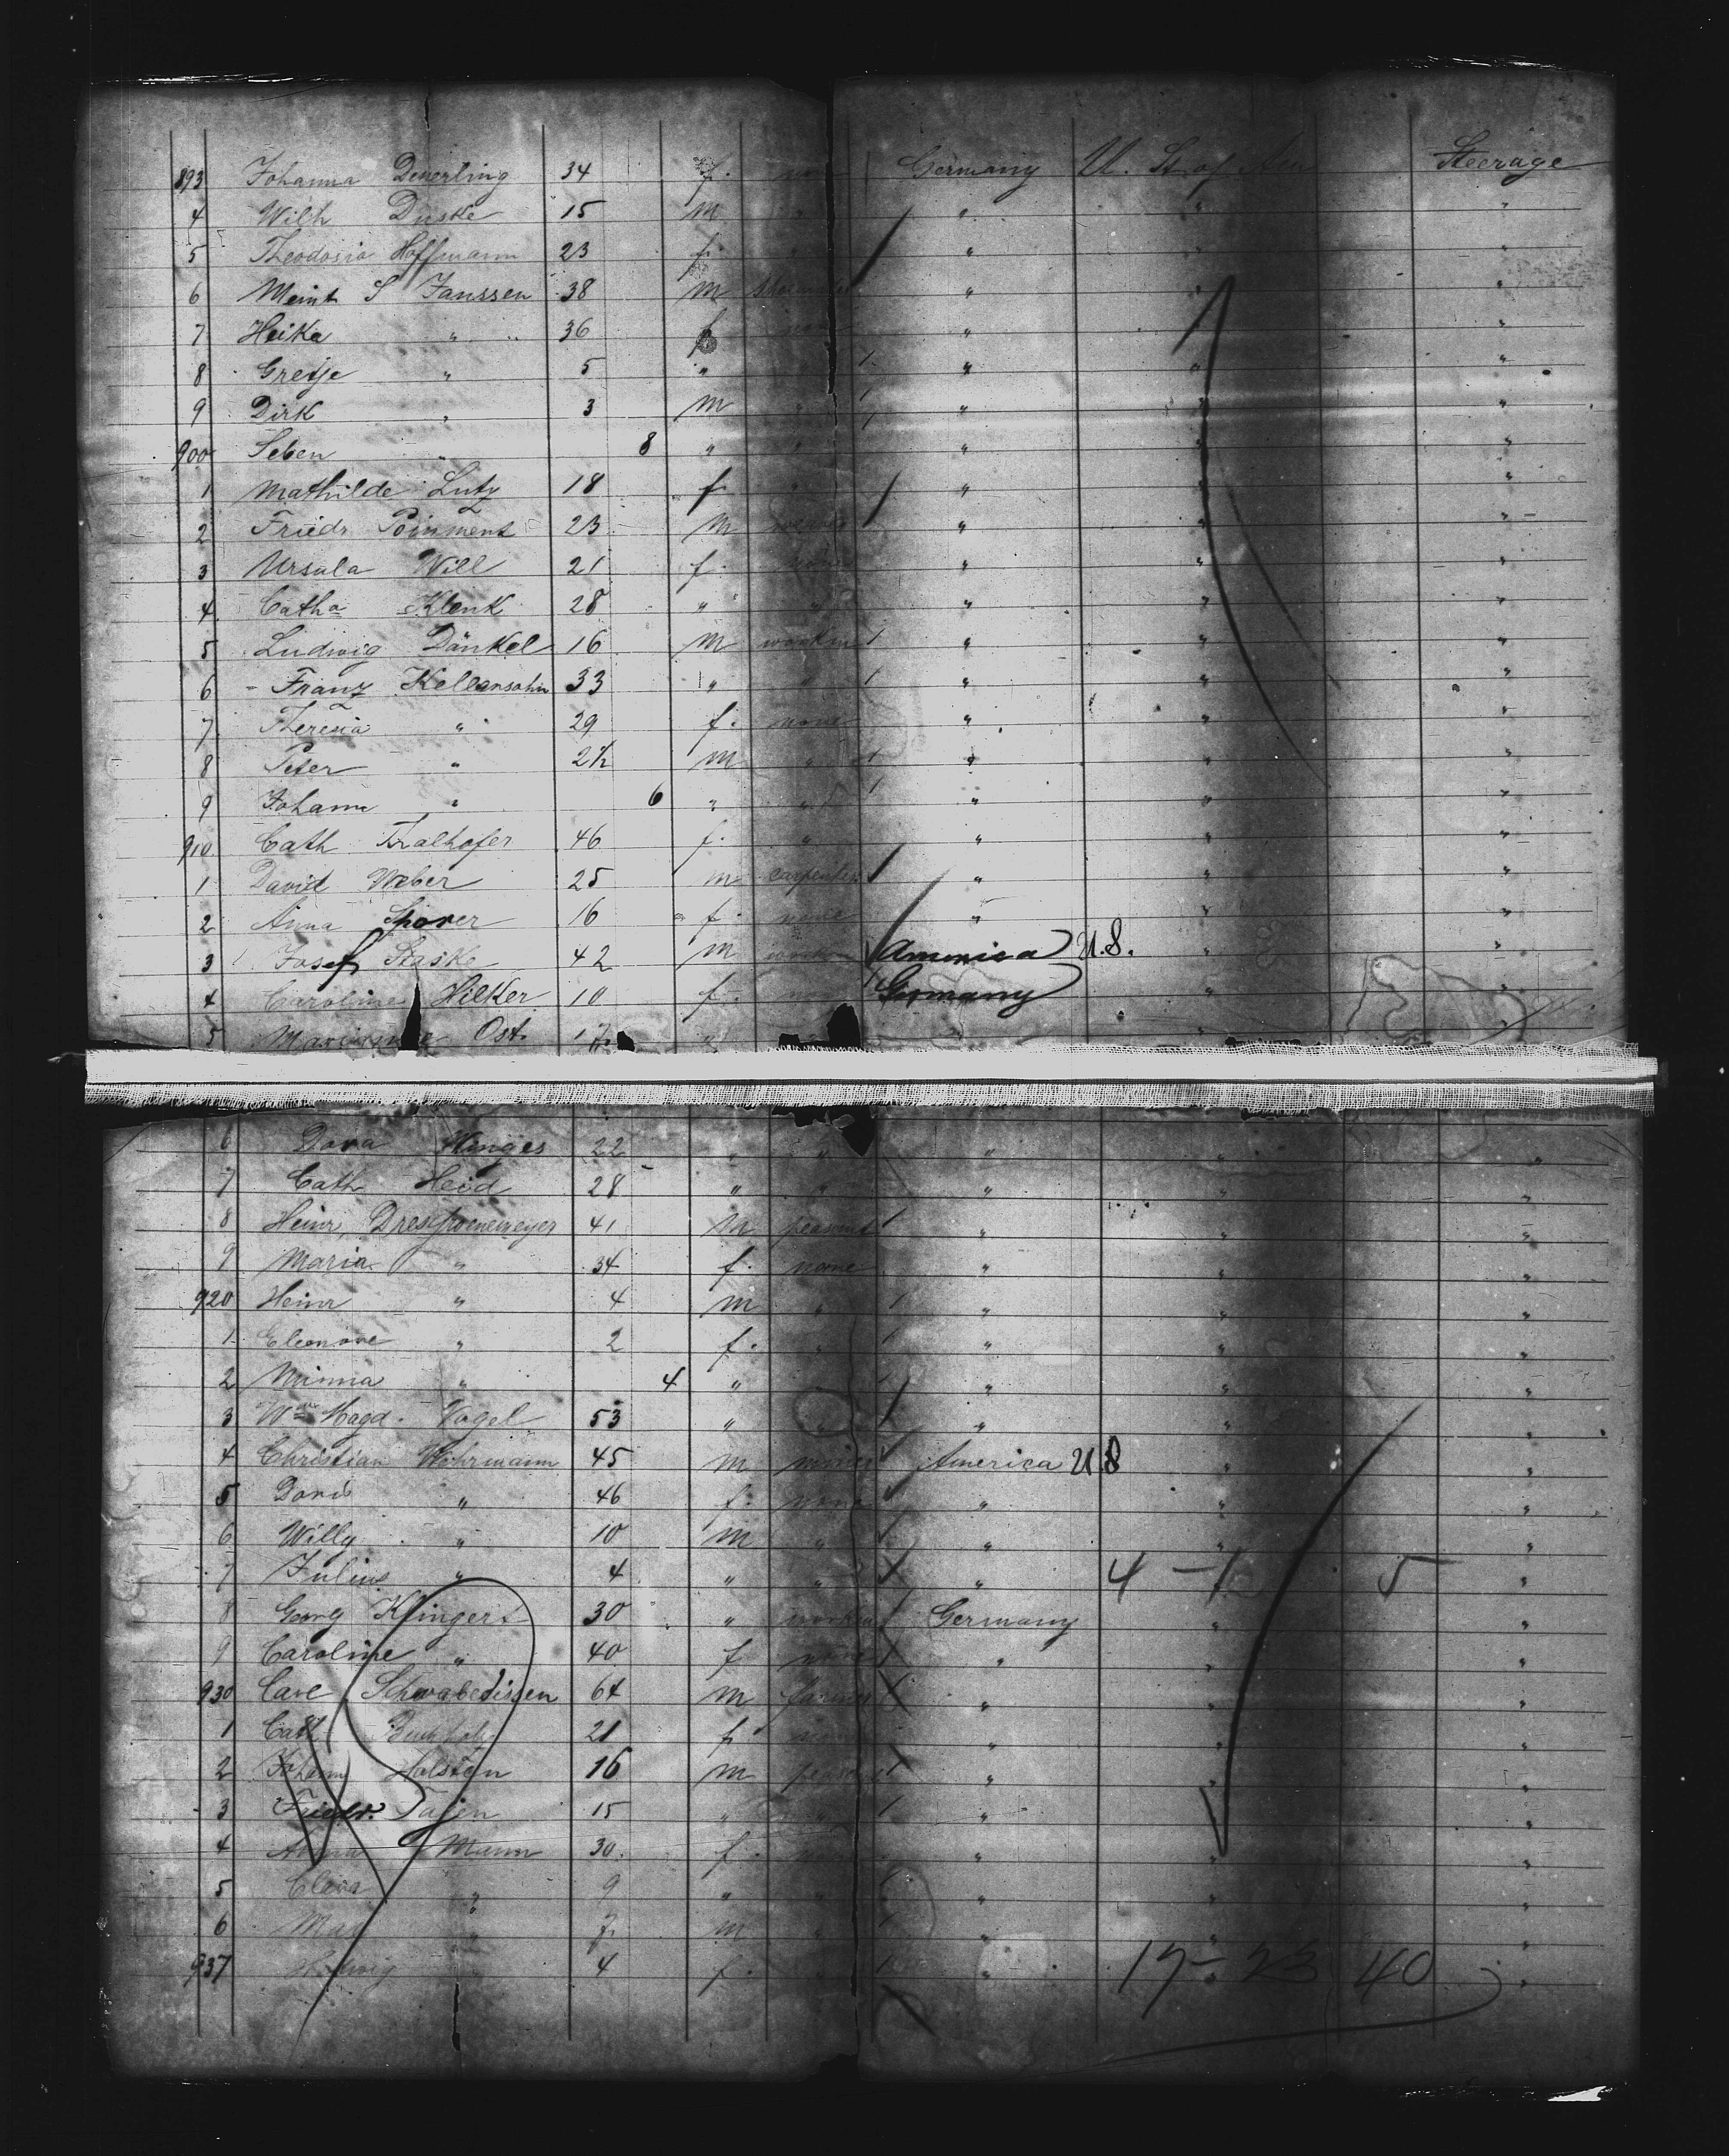 893 Johanna Deuerling 34 f. none Germany U. St. of Am Steerage
4 Wilh Duske 15 m " " " "
5 Theodosia Hoffmann 23 f. " " " "
6 Meint S Janssen 38 m " " "
7 Heika " 36 f none " " "
8 Gretje " 5 " " " " "
9 Dirk " 3 m " " " "
900 Seben " 8 " " " " "
1 Mathilde Lutz 18 f. " " " "
2 Friedr 23 m " " "
3 Ursula Will 21 f. none " " "
4 Catha Klenk 28 " " " " "
5 Ludwig Dänkel 16 m workm " " "
6 Franz Kellersohn 33 " " " " "
7 Theresia " 29 f. none " " "
8 Peter " 2½ m " " " "
9 Johann " 6 " " " " "
910 Cath 46 f. " " " "
1 David Weber 25 m carpenter " " "
2 Anna Sporer 16 f. none " " "
3 Josef 42 m America U.S. " "
4 Caroline Hilker 10 f. Germany " "
5 Ost. 17 "
6 Dora Hinges 22 " " " " "
7 Cath Heid 28 " " " " "
8 Heinr. 41 m peasant " " "
9 Maria " 34 f. none " " "
920 Heinr " 4 m " " " "
1 Eleonore " 2 f. " " " "
2 Minna " 4 " " " " "
3 Wwe Magd. Vogel 53 " " " " "
4 Christian Wehrmann 45 m America U S " "
5 Doris " 46 f. none " " "
6 Willy " 10 m " " " "
7 Julius " 4 " " " 4 – 1 5 "
8 Georg Klingert 30 " workm Germany " "
9 Caroline " 40 f none " " "
930 Carl Schwabedissen 64 m farmer " " "
1 Cath 21 f. " " "
2 Johann Holsten 16 m peasant " " "
3 Friedr. Tajen 15 " " " "
4 Mann 30. f. " " "
5 Clara " 9 " " " " "
6 Max " 7. m " " " "
937 " 4 f. " " 17 – 23 40 "